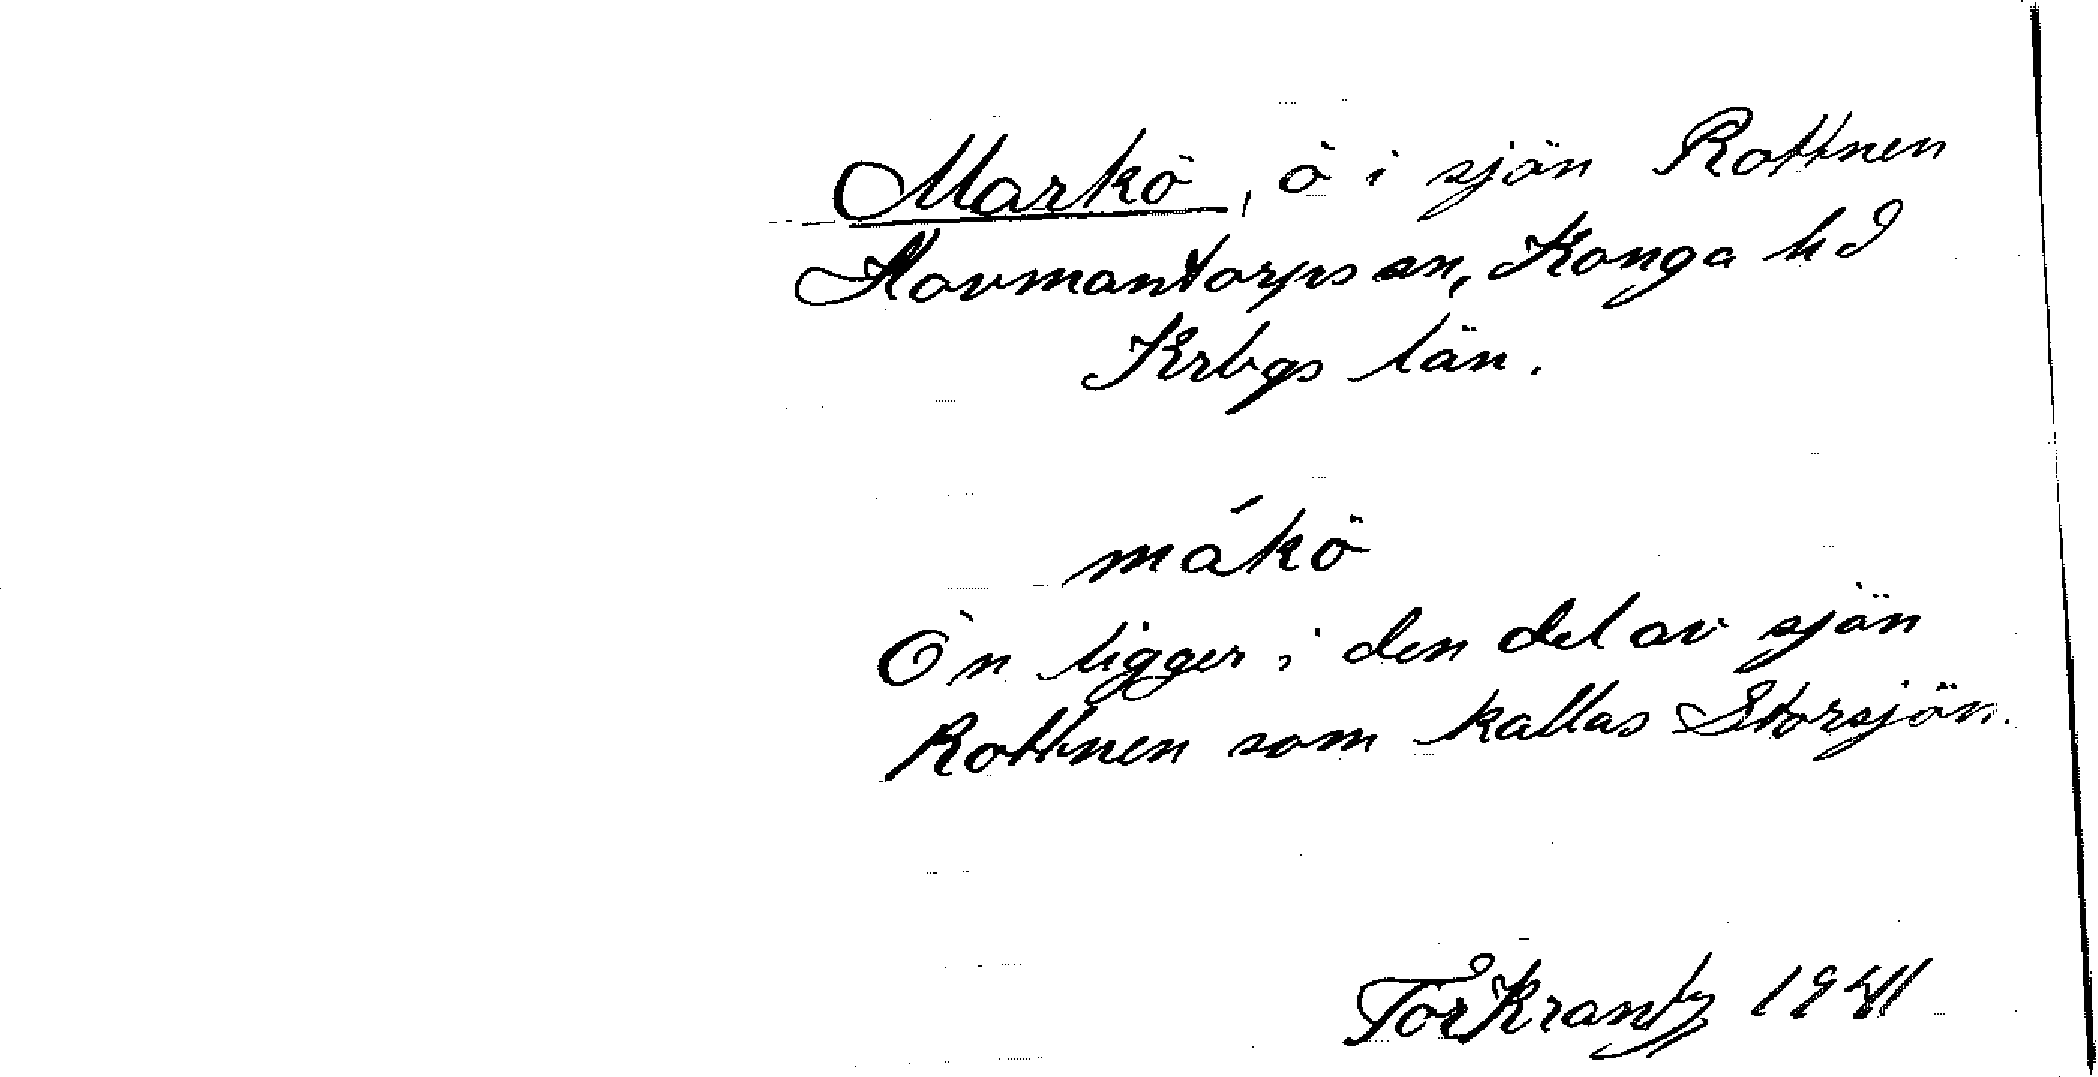 Markö, ö i sjön Rottnen
Hovmantorps sn, Konga hd
Krbgs län.
mákö
Ön ligger i den del av sjön
Rottnen som kallas Storsjön.
Tor Krantz 1941